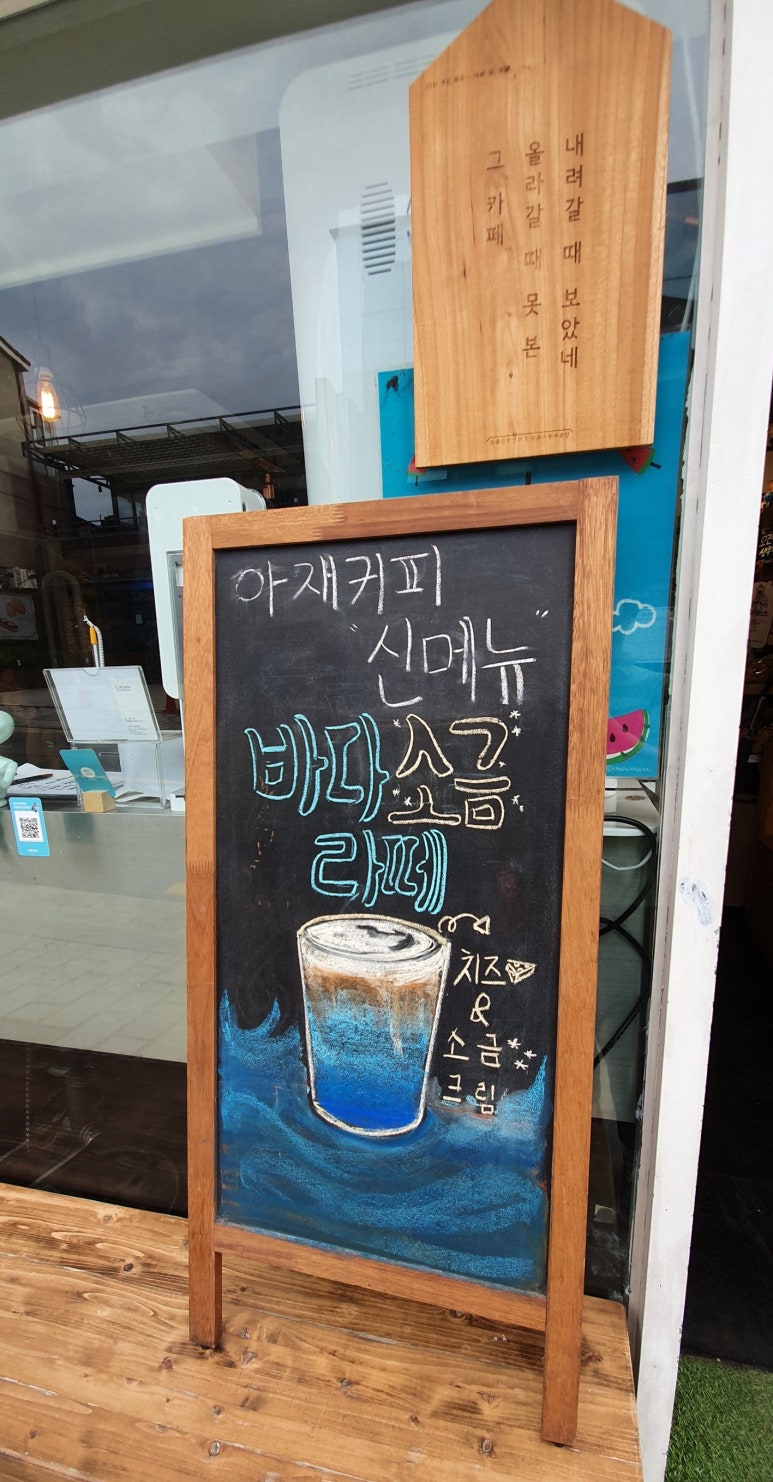 내려갈 때 보았네
올라갈 때 못 본
그 카페
아재커피
"신메뉴"
바다소금
라떼
치즈
&
소금
크림